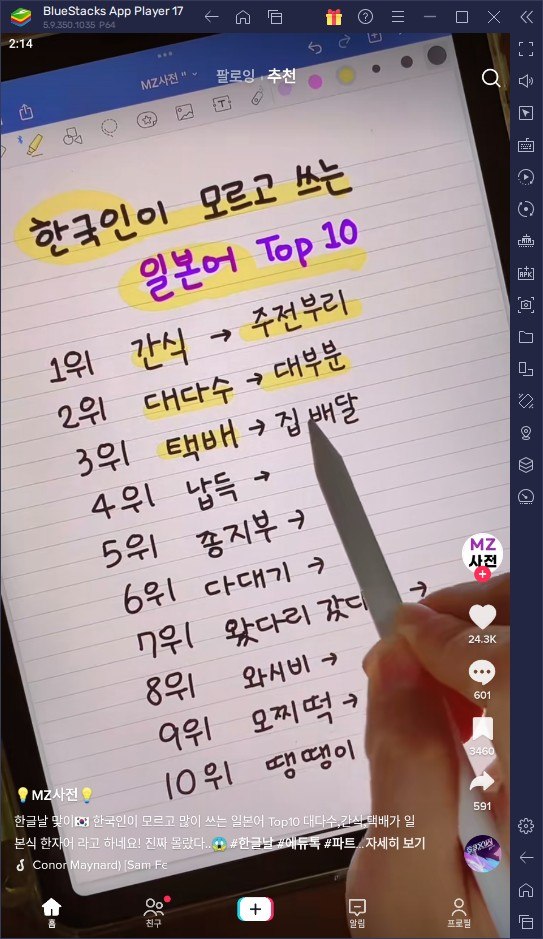 BlueStacks App Player 17
5.9.350.1035 P64
2:14
MZ사전 "
팔로잉 추천
한국인이 모르고 쓰는
일본어 Top 10
1위 간식 → 주전부리
2위 대다수 → 대부분
3위 택배 → 집 배달
4위 납득 →
5위 종지부 →
6위 다대기 →
7위 왔다리 갔다 →
8위 와시비 →
9위 모찌떡 →
10위 땡땡이
MZ
사전
24.3K
601
3460
591
💡MZ사전💡
한글날 맞이🇰🇷 한국인이 모르고 많이 쓰는 일본어 Top10 대다수,간식,택배가 일
본식 한자어 라고 하네요! 진짜 몰랐다..😱 #한글날 #에듀톡 #파트...자세히 보기
Conor Maynard) [Sam Fe
홈 친구 알림 프로필